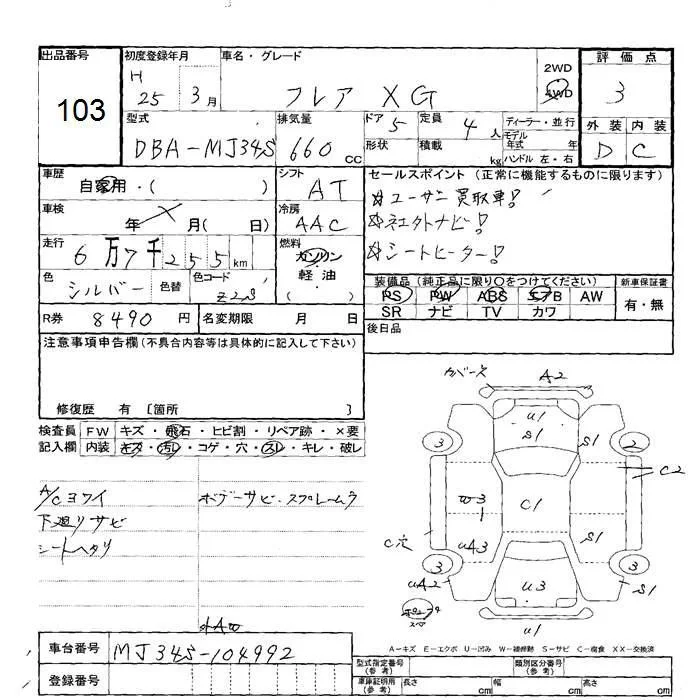 出品番号
103
初度登録年月
H
25 3月
車名・グレード
フレア XG
2WD
4WD
評価点
3
型式
DBA-MJ34S
排気量
660 CC
ドア 5
定員 4 人
形状
積載 kg
ディーラー・並行
モデル
年式 年
ハンドル 左・右
外装 内装
D C
車歴
自家用・( )
シフト
AT
車検
年 月( 日)
冷房
AAC
走行
6万7千255km
燃料
ガソリン
軽油
( )
色
シルバー
色替
色コード
セールスポイント(正常に機能するものに限ります)
☆ユーザー買取車!
☆社外ナビ!
☆シートヒーター!
装備品(純正品に限り○をつけてください)
PS PW ABS エアB AW
SR ナビ TV カワ
新車保証書
有・無
R券 8490円
名変期限 月 日
後日品
注意事項申告欄(不具合内容等は具体的に記入して下さい)
修復歴 有 〔箇所 〕
検査員 FW キズ・飛石・ヒビ割・リペア跡・×要
記入欄 内装 キズ・汚レ・コゲ・穴・スレ・キレ・破レ
A/Cヨワイ
下廻リサビ
シートヘタリ
ボデーサビ・スプレームラ
A2
U1
S1
S1
3
2
C2
W3
1
C1
C穴
UA3
S1
3
3
UA2
U3
S1
U1
A-キズ E-エクボ U-凹み W-補修跡 S-サビ C-腐食 XX-交換済
車台番号 MJ34S-104992
登録番号
型式指定番号
(参考)
類別区分番号
(参考)
車庫証明用
(参考)
長さ cm 幅 cm 高さ cm